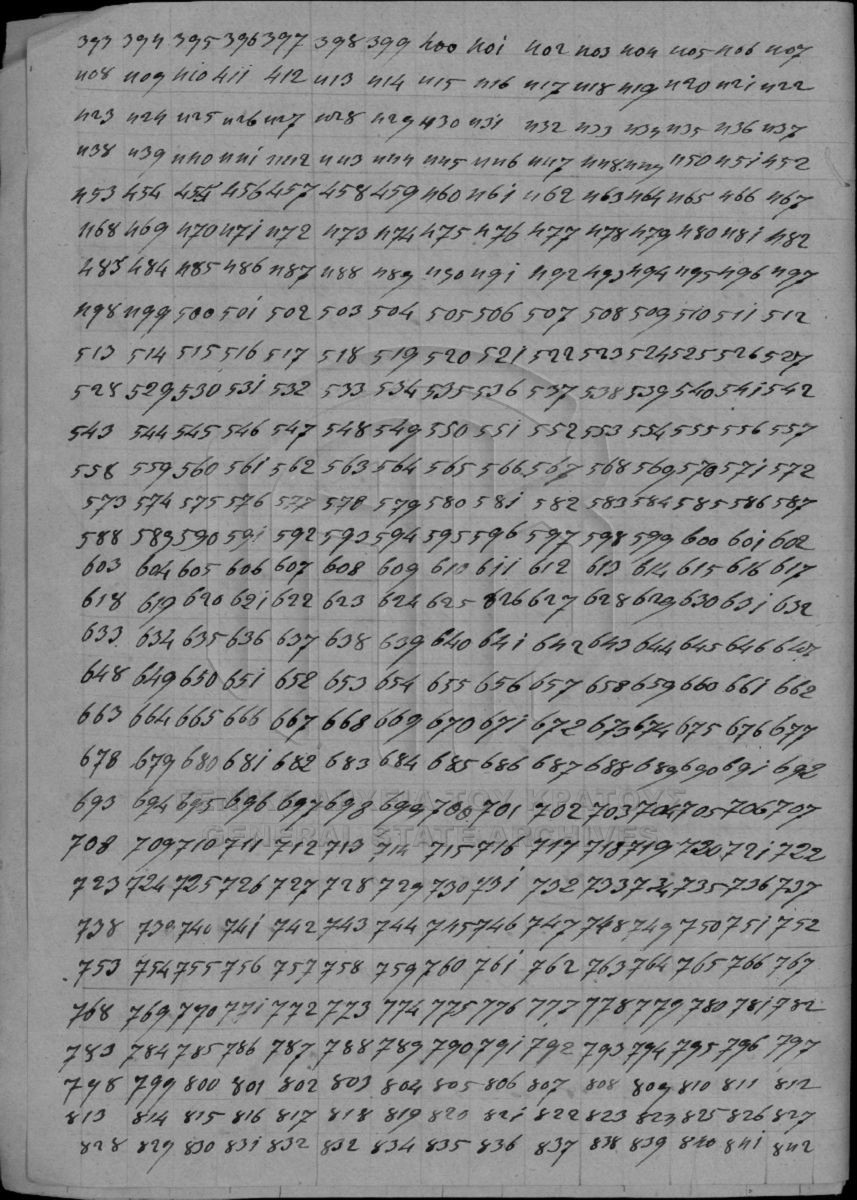 393 394 395 396 397 398 399 400 401 402 403 404 405 406 407
408 409 410 411 412 413 414 415 416 417 418 419 420 421 422
423 424 425 426 427 428 429 430 431 432 433 434 435 436 437
438 439 440 441 442 443 444 445 446 447 448 449 450 451 452
453 454 455 456 457 458 459 460 461 462 463 464 465 466 467
468 469 470 471 472 473 474 475 476 477 478 479 480 481 482
483 484 485 486 487 488 489 490 491 492 493 494 495 496 497
498 499 500 501 502 503 504 505 506 507 508 509 510 511 512
513 514 515 516 517 518 519 520 521 522 523 524 525 526 527
528 529 530 531 532 533 534 535 536 537 538 539 540 541 542
543 544 545 546 547 548 549 550 551 552 553 554 555 556 557
558 559 560 561 562 563 564 565 566 567 568 569 570 571 572
573 574 575 576 577 578 579 580 581 582 583 584 585 586 587
588 589 590 591 592 593 594 595 596 597 598 599 600 601 602
603 604 605 606 607 608 609 610 611 612 613 614 615 616 617
618 619 620 621 622 623 624 625 626 627 628 629 630 631 632
633 634 635 636 637 638 639 640 641 642 643 644 645 646 647
648 649 650 651 652 653 654 655 656 657 658 659 660 661 662
663 664 665 666 667 668 669 670 671 672 673 674 675 676 677
678 679 680 681 682 683 684 685 686 687 688 689 690 691 692
ΓΕΝΙΚΑ ΑΡΧΕΙΑ ΤΟΥ ΚΡΑΤΟΥΣ
693 694 695 696 697 698 699 700 701 702 703 704 705 706 707
GENERAL STATE ARCHIVES
708 709 710 711 712 713 714 715 716 717 718 719 720 721 722
723 724 725 726 727 728 729 730 731 732 733 734 735 736 737
738 739 740 741 742 743 744 745 746 747 748 749 750 751 752
753 754 755 756 757 758 759 760 761 762 763 764 765 766 767
768 769 770 771 772 773 774 775 776 777 778 779 780 781 782
783 784 785 786 787 788 789 790 791 792 793 794 795 796 797
798 799 800 801 802 803 804 805 806 807 808 809 810 811 812
813 814 815 816 817 818 819 820 821 822 823 823 825 826 827
828 829 830 831 832 832 834 835 836 837 838 839 840 841 842